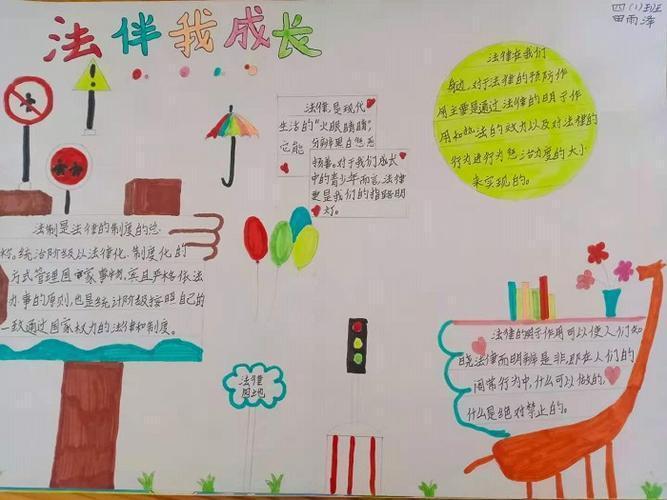 法伴我成长
四(1)班
田雨泽
法律在我们
身边,对于法律的预防作
用主要是通过法律的明示作
用和执法的效力以及对法律的
行为进行为惩治力度的大小
来实现的。
法律,是现代
生活的“火眼睛睛”,
它能分辨黑白惩恶
扬善。对于我们成长
中的青少年而言,法律
更是我们的指路明
灯。
法制是法律的制度的总
称。统治阶级以法律化、制度化的
方式管理国家事务,并且严格依法
办事的原则,也是统计阶级按照自己的
一致通过国家权力的法律和制度。
法律
园地
法律的明示作用可以使人们知
晓法律而明辨是非,即在人们的
日常行为中,什么可以做的,
什么是绝对禁止的。